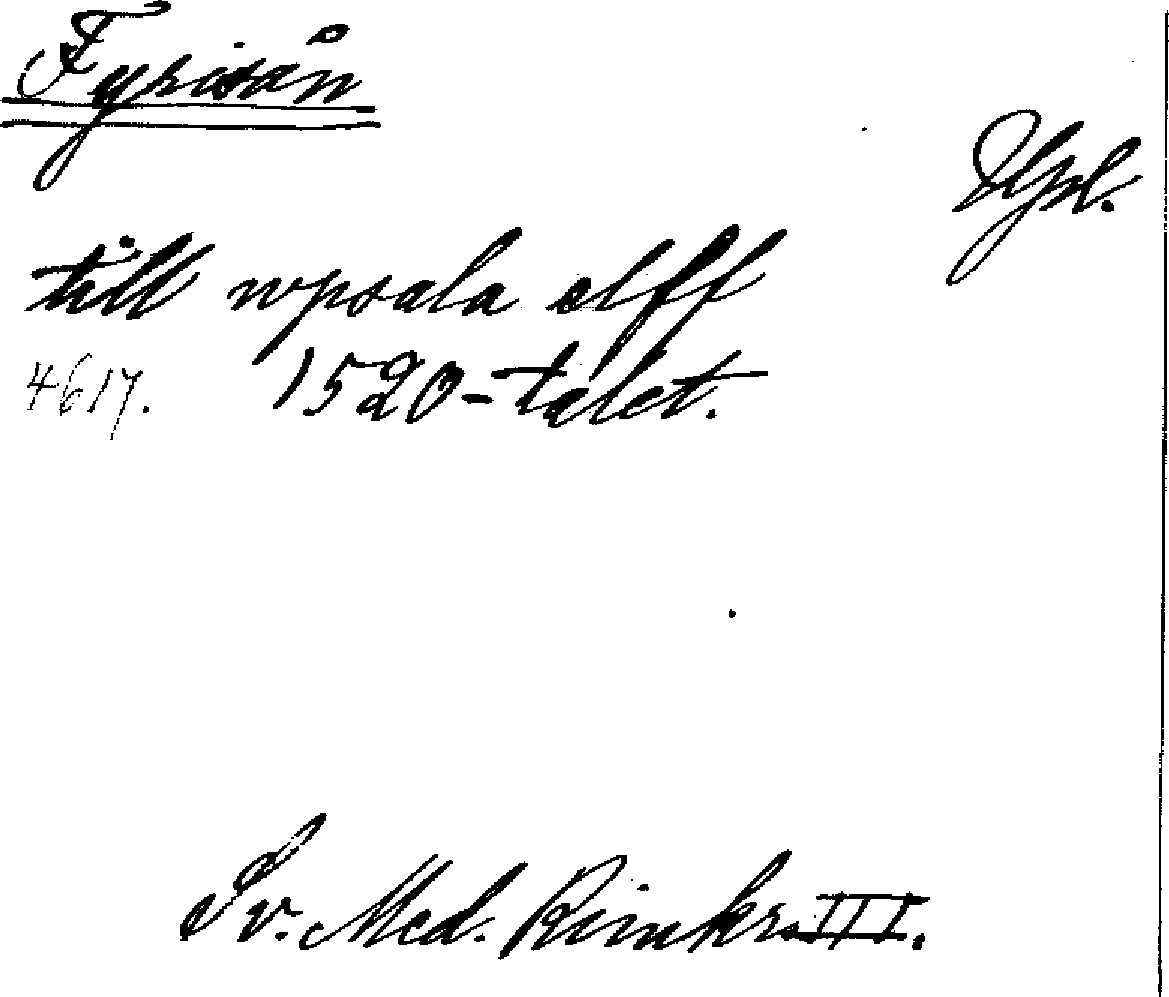 Fyrisån
Upl.
till wpsala elff
4617. 1520-talet.
Sv. Med. Rimkr. III.